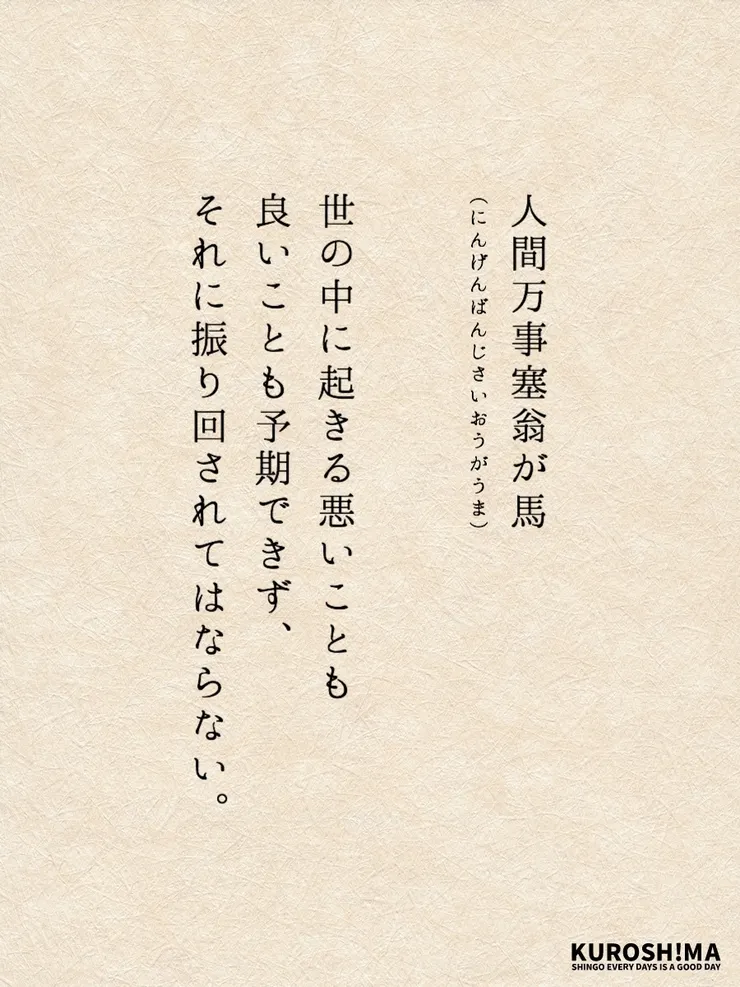 人間万事塞翁が馬
（にんげんばんじさいおうがうま）
世の中に起きる悪いことも
良いことも予期できず、
それに振り回されてはならない。
KUROSH!MA
SHINGO EVERY DAYS IS A GOOD DAY